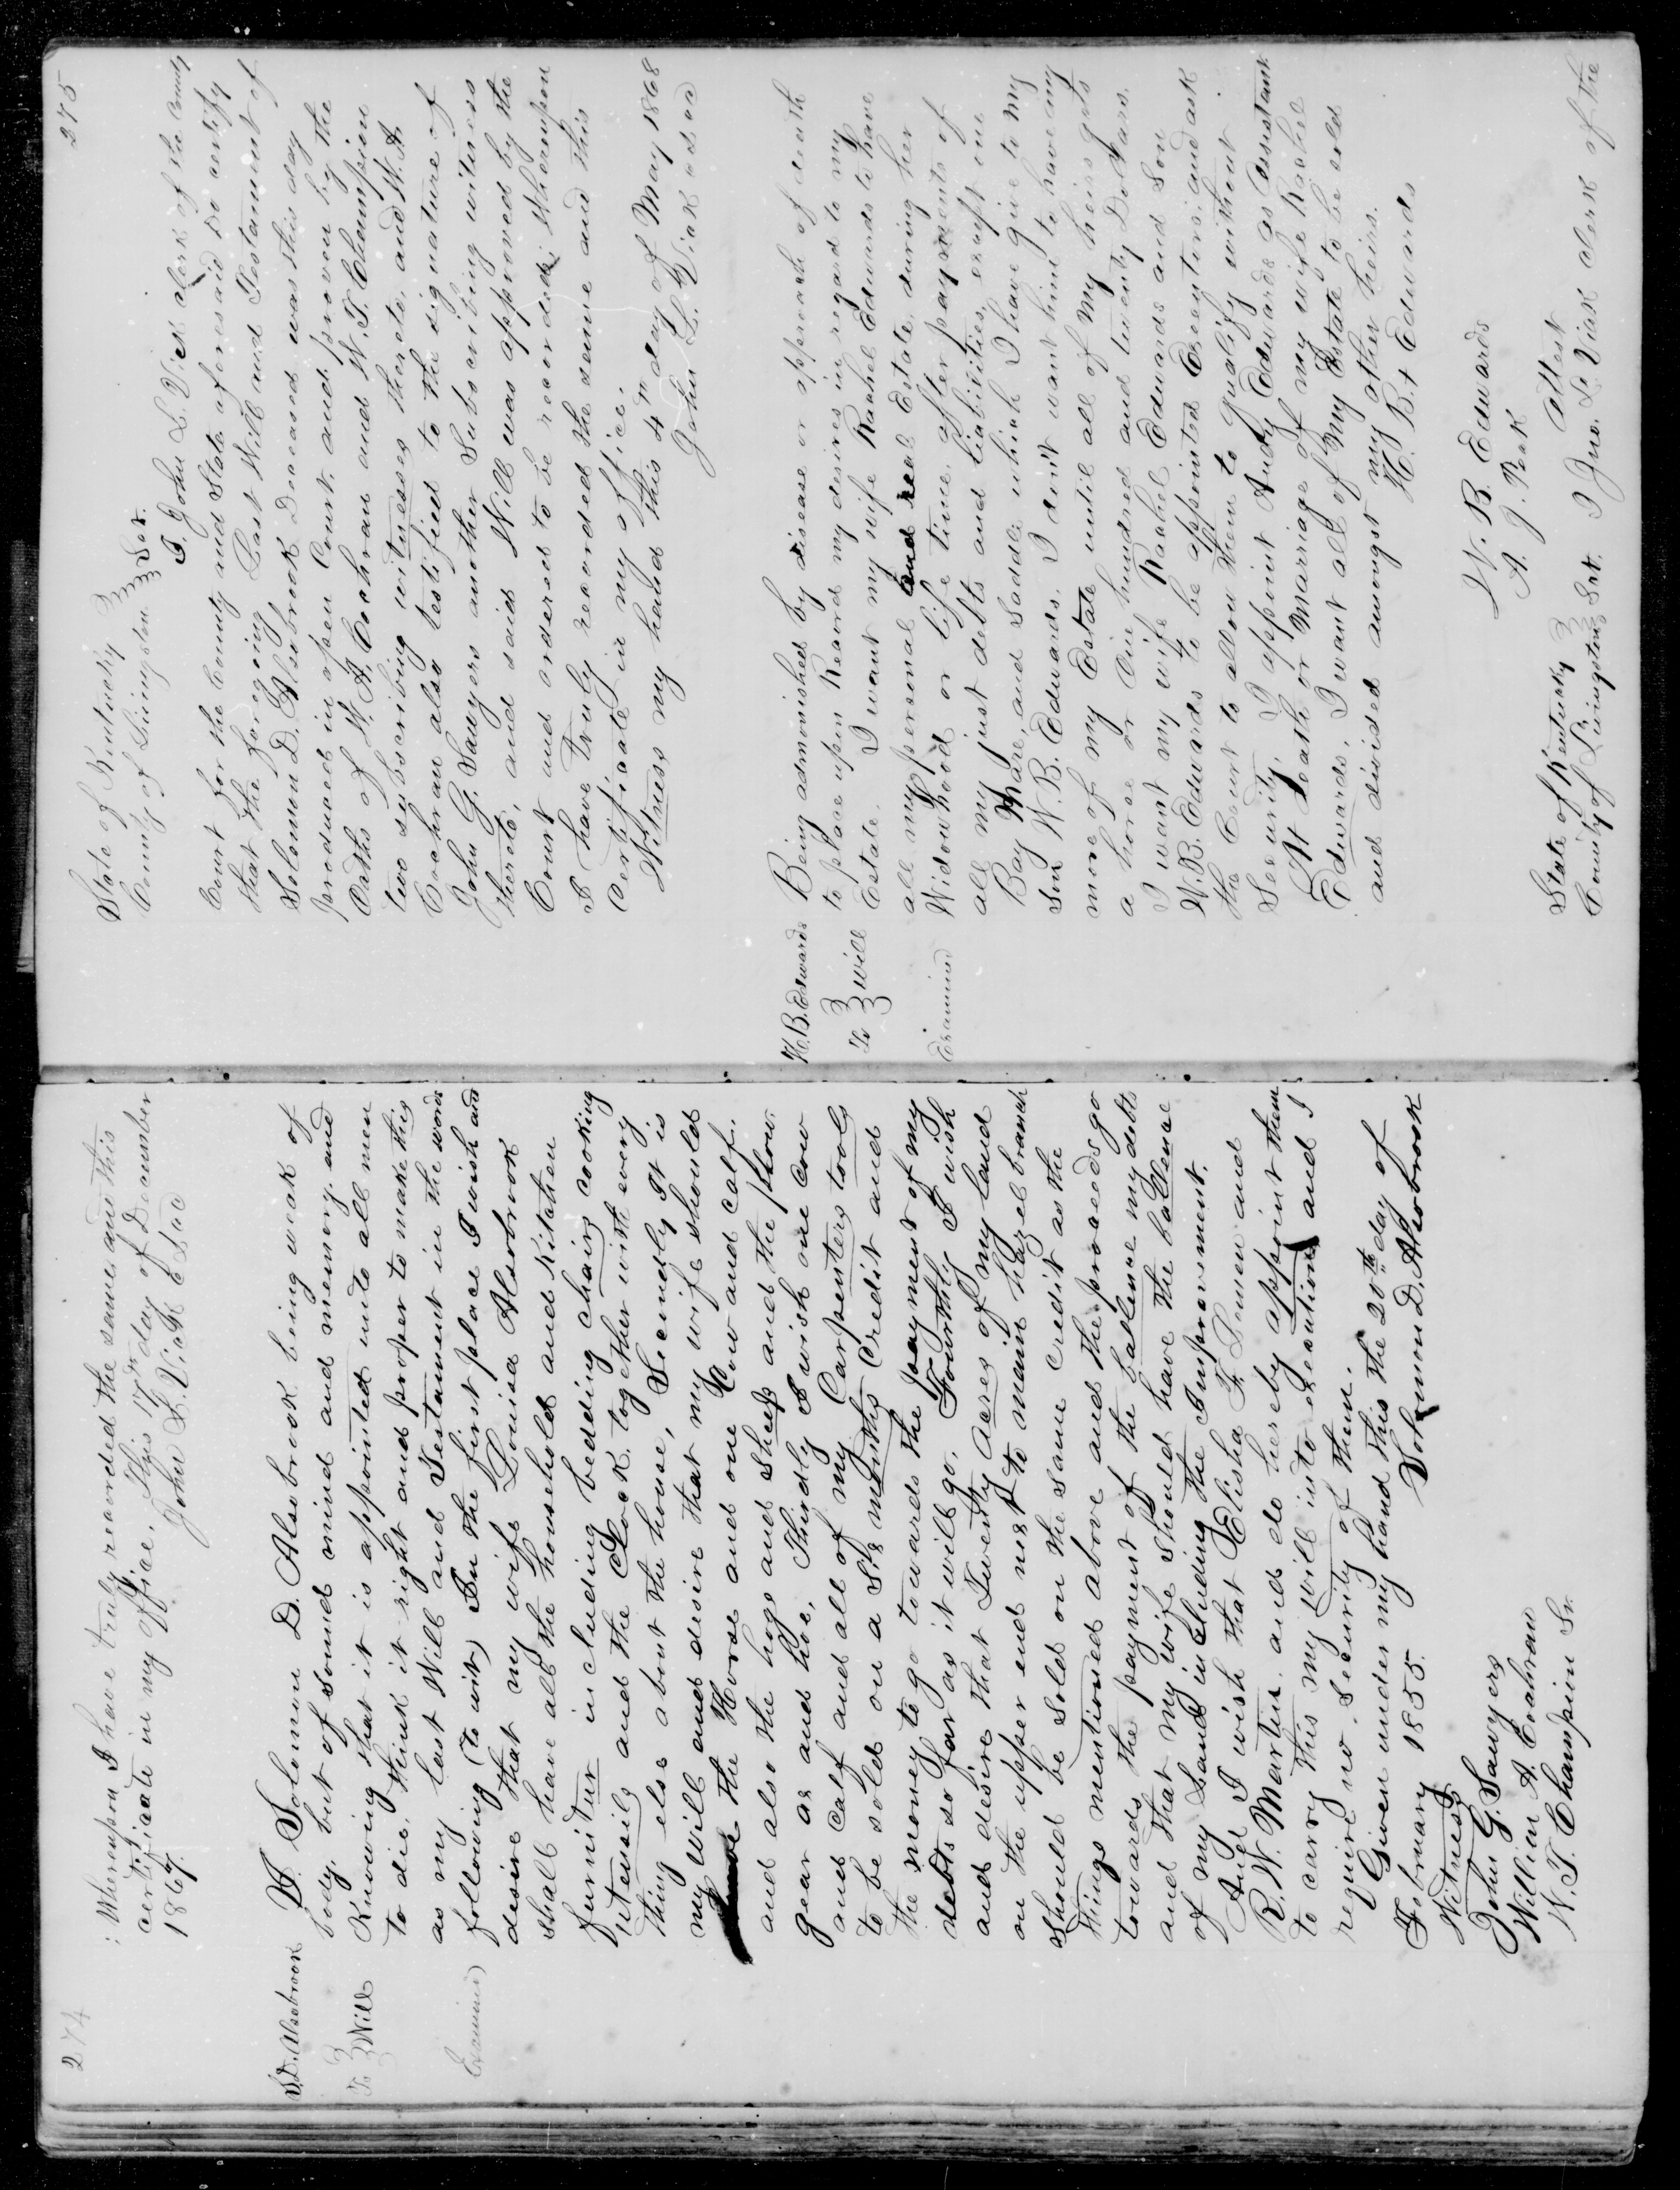 274
: Whereupon I have truly recorded the same and this
certificate in my office, This 17th day of December
1867.
John L. Vick C L C C
S.D. Alsobrook
To } Will
Examined
I Solomon D. Alsobrook being weak of
body, but of sound mind and memory, and
Knowing that it is appointed unto all men
to die, think it right and proper to make this
as my last Will and Testament in the words
following (to wit) In the first place I wish and
desire that my wife Louisa Alsobrook
shall have all the household and Kitchen
furniture including bedding chairs cooking
utensils and the Clock together with every
thing else about the house, Secondly It is
my will and desire that my wife should
have the Horse and one Cow and calf.
and also the hogs and sheep and the plow
gear ax and hoe, Thirdly I wish one cow
and calf and all of my Carpenters tools
to be sold on a Six months Credit and
the money to go towards the payment of my
debts so far as it will go. Fourthly I wish
and desire that Twenty Acres of my land
on the upper end next to main hazel branch
should be sold on the same credit as the
things mentioned above and the proceeds go
towards the payment of the ballence my debts
and that my wife should have the ballence
of my Land including the Improvement.
And I wish that Elisha F. Lowen and
R. W. Martin and do hereby appoint them
to carry this my will into execution and I
require no security of them.
Given under my hand this the 20th day of
February 1855.
Solomon D. Alsobrook
Witness
John G. Sawyers
William A. Cochran
W. T. Champion Sr.
275
State of Kentucky }
County of Livingston } Sct.
I John L. Vick clerk of the County
Court for the County and State aforesaid do certify
that the foregoing Last Will and Testament of
Solomon D. Alsobrook Deceased was this day
produced in open Court and proven by the
Oaths of W. A. Cochran and W. T. Champion
two subscribing witnesses thereto, and W. A.
Cochran also testified to the signature of
John G. Sawyers another Subscribing witness
thereto, and said Will was approved by the
Court and ordered to be recorded; Whereupon
I have truly recorded the same and this
Certificate in my office.
Witness my hand this 4th day of May 1868
John L. Vick
H. B. Edwards
To } will
Examined
Being admonished by disease or approach of death
to place upon Record my desires in regard to my
Estate. I want my wife Rachel Edwards to have
all my personal and real Estate, during her
Widowhood or life time, after payments of
all my just debts and liabilities, except one
Bay Mare, and Saddle which I have give to my
Son W. B. Edwards. I don't want him to have any
more of my Estate until all of my heirs gets
a horse or One hundred and twenty Dollars.
I want my wife Rachel Edwards and Son
W. B. Edwards to be appointed Executors, and ask
the Court to allow them to qualify without
Security. I appoint Andy Edwards as assistant
At death or Marriage of my wife Rachel
Edwards, I want all of My Estate to be sold
and divided amongst my other heirs.
H. B. + Edwards
W. B. Edwards
A. J. Peek Attest
State of Kentucky }
County of Livingston } Sct. I Jno. L. Vick clerk of the